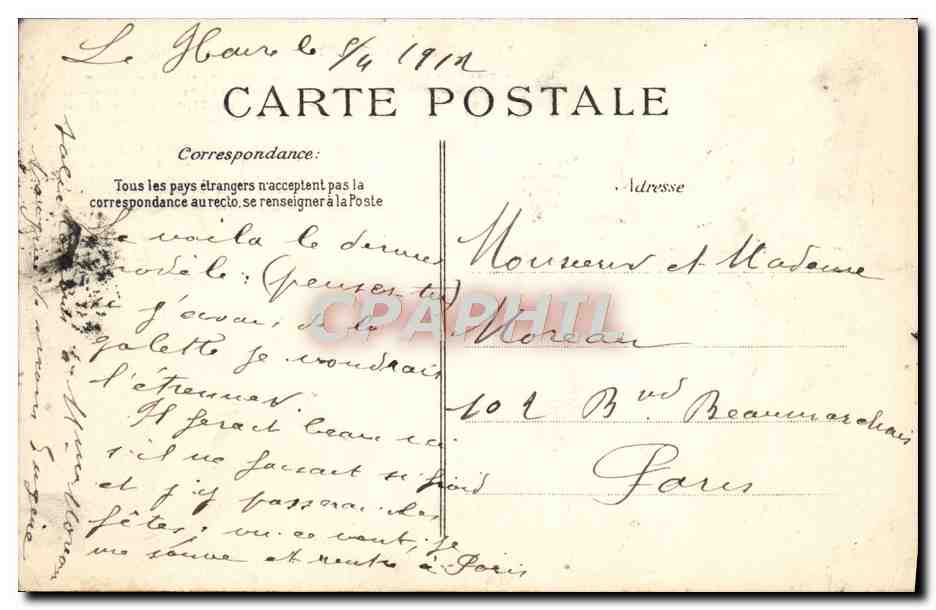 Le Havre le 5/4 1912
CARTE POSTALE
Correspondance:
Tous les pays étrangers n'acceptent pas la
correspondance au recto, se renseigner à la Poste
Adresse
voila le dernier
modèle: (penses-tu)
si j'avais de la
galette je voudrais
l'étrenner.
Il ferait beau ici
s'il ne faisait si froid
et j'y passerai les
fêtes; vu ce vent, je
me sauve et rentre à Paris
à Mme Moreau
Eugène
Monsieur et Madame
Moreau
102 Bvd Beaumarchais
Paris
CPAPHIL